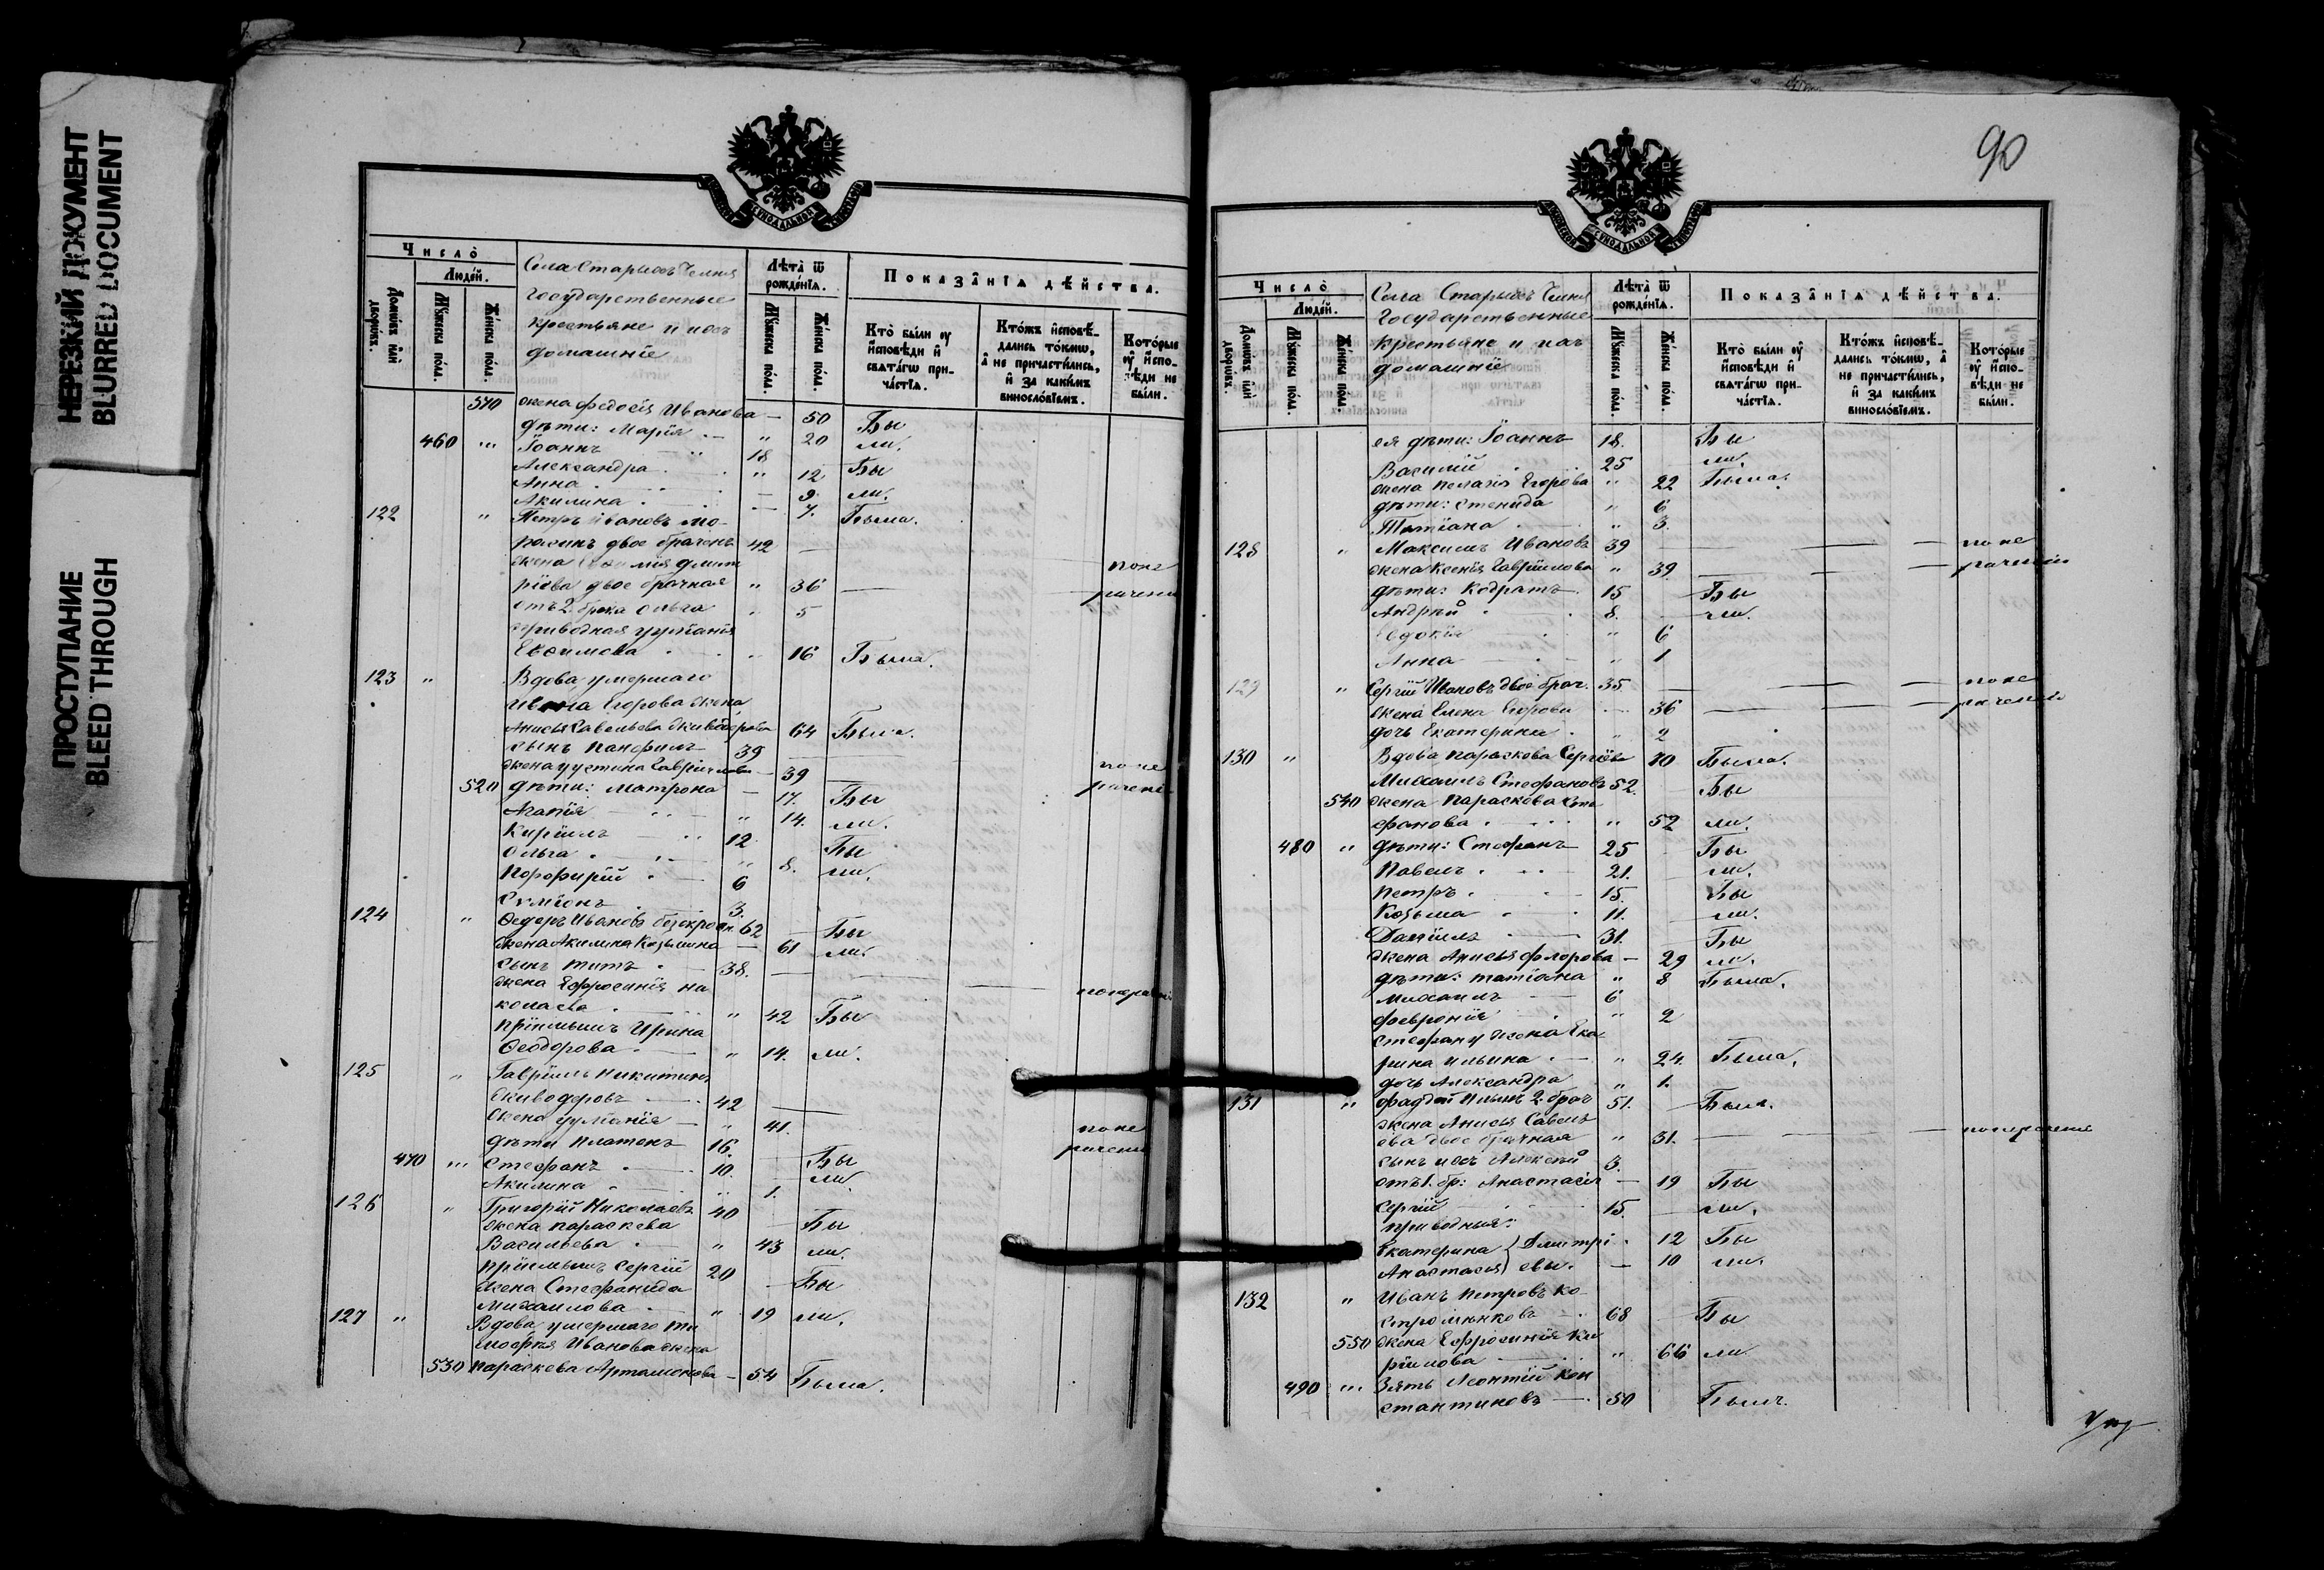 НЕРЕЗКИЙ ДОКУМЕНТ
BLURRED DOCUMENT
ПРОСТУПАНИЕ
BLEED THROUGH
Число̀
Людей.
Домѡвъ и҆лѝ дворѡвъ.
Мꙋжеска пола.
Женска пола.
Села Старыхъ
Государственные
крестьяне и ихъ
домашніе
Лѣта̀ ѿ рожде́нїѧ.
Мꙋжеска пола.
Женска пола.
Показа̑нїѧ дѣ́йства.
Кто̀ бы́ли ᲂу҆ и҆сповѣди и҆ свѧта́гѡ прича́стїѧ.
Кто́жъ и҆сповѣ́дались то́кмѡ, а҆ не причасти́лись, и҆ за каки́мъ винослові́емъ.
Кото́рые ᲂу҆ и҆сповѣди не бы́ли.
510 жена Федосія Иванова — 50 Бы
дѣти: Марія — " 20 ли.
460 " Іоаннъ 18
Александра " 12 Бы
Анна — 9. ли.
Акилина — 7. Была.
122 " Петръ Ивановъ
двоебраченъ 42 —
жена
ріева двоебрачная " 36 —
отъ 2 брака Ольга " 5
приводная
Евѳимова " 16 Была.
123 " Вдова умершаго
Ивана Егорова жена
Анисья Савельева 64 Была.
сынъ Панфилъ 39
жена Устина Гавріилова — 39
520 дѣти: Матрона — 17. Бы
Агапія " 14. ли.
Кириллъ 12. Бы
Ольга " 8. ли.
Порфирій 6
Сумеонъ 3.
124 " Ѳедоръ Ивановъ 62 — Бы
жена Акилина Козьмина — 61 ли.
сынъ Титъ 38. —
жена Ефросинія Ни
колаева " 42 Бы
пріемышъ Ирина
Ѳеодорова " 14. ли.
125 " Гавріилъ Никитинъ
Живодеровъ 42 —
жена " 41.
дѣти Платонъ 16. Бы
470 " Стефанъ 10. ли.
Акилина " 1.
126 " Григорій Николаевъ 40 — Бы
жена Параскева
Васильева " 43 ли.
пріемышъ Сергій 20 — Бы
жена Стефанида
Михаилова " 19 ли.
127 " Вдова умершаго Ти
мофея Иванова жена
530 Параскева Артамонова — 54 Была.
90
Число̀
Людей.
Домѡвъ и҆лѝ дворѡвъ.
Мꙋжеска пола.
Женска пола.
Села Старыхъ
Государственные
крестьяне и ихъ
домашніе
Лѣта̀ ѿ рожде́нїѧ.
Мꙋжеска пола.
Женска пола.
Показа̑нїѧ дѣ́йства.
Кто̀ бы́ли ᲂу҆ и҆сповѣди и҆ свѧта́гѡ прича́стїѧ.
Кто́жъ и҆сповѣ́дались то́кмѡ, а҆ не причасти́лись, и҆ за каки́мъ винослові́емъ.
Кото́рые ᲂу҆ и҆сповѣди не бы́ли.
ея дѣти: Іоаннъ 18. Бы
Василій 25 ли.
жена Пелагія Егорова " 22 Была.
дѣти: Степида " 6
Татіана " 3.
128 " Максимъ Ивановъ 39 — по не
жена Ксенія Гавріилова " 39. — раченію
дѣти: Кодратъ 15 Бы
Андрей 8. ли.
Евдокія " 6
Анна " 1
129 " Сергій Ивановъ двоебрач. 35 — по не
жена Елена Егорова 36 — раченію
дочь Екатерина " 2
130 " Вдова Параскова Сергіева 70 Была.
Михаилъ Стефановъ 52. Бы
540 жена Параскова Сте
фанова " 52 ли.
480 " дѣти: Стефанъ 25 Бы
Павелъ 21. ли.
Петръ 15. Бы
Козьма 11. ли.
Даніилъ 31. Бы
жена Анисья Флорова — 29 ли.
дѣти: Татіана " 8 Была.
Михаилъ 6
Феоронія " 2
Стефану жена Ека
рина Ильина " 24. Была.
дочь Александра " 1.
131 " Фаддей Ильинъ 2 брач 51. Былъ.
жена Анисья Савель
ева двоебрачная " 31. —
сынъ ихъ Алексей 3.
отъ 1. бр: Анастасія — 19 Бы
Сергій 15. ли.
приводныя:
Екатерина } Дмитрі 12 Бы
Анастасія } евы. — 10 ли.
132 " Иванъ Петровъ Ко
стромынковъ 68 Бы
550 жена Ефросинія Ки
рилова " 66 ли.
490 " Зять Леонтій Кон
стантиновъ 50 Былъ.